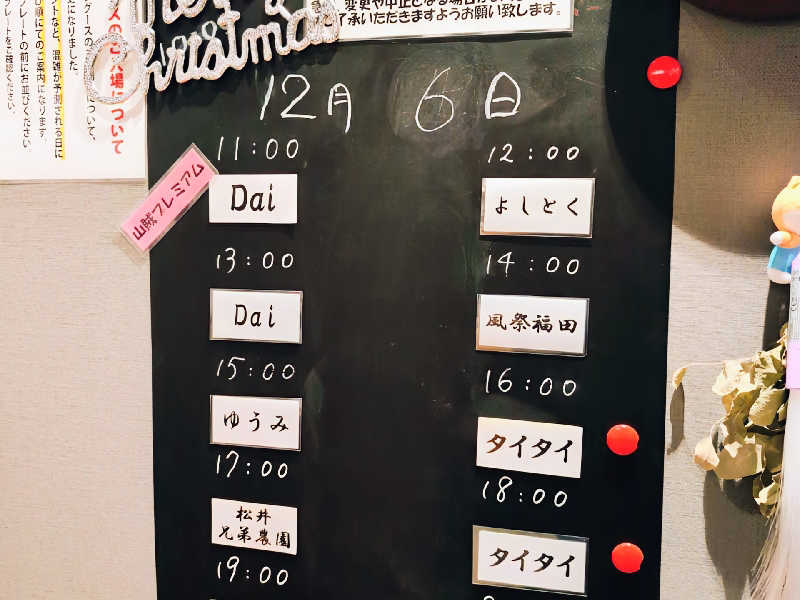 Merry
Christmas
変更や中止となる場合が
了承いただきますようお願い致します。
スのご入場について
になりました。
トなど、混雑が予測される日に
順にてのご案内になります。
プレートの前にお並びください。
プレートをご確認ください。
12月 6日
11:00
山賊プレミアム
Dai
13:00
Dai
15:00
ゆうみ
17:00
松井
兄弟農園
19:00
12:00
よしとく
14:00
風祭福田
16:00
タイタイ
18:00
タイタイ